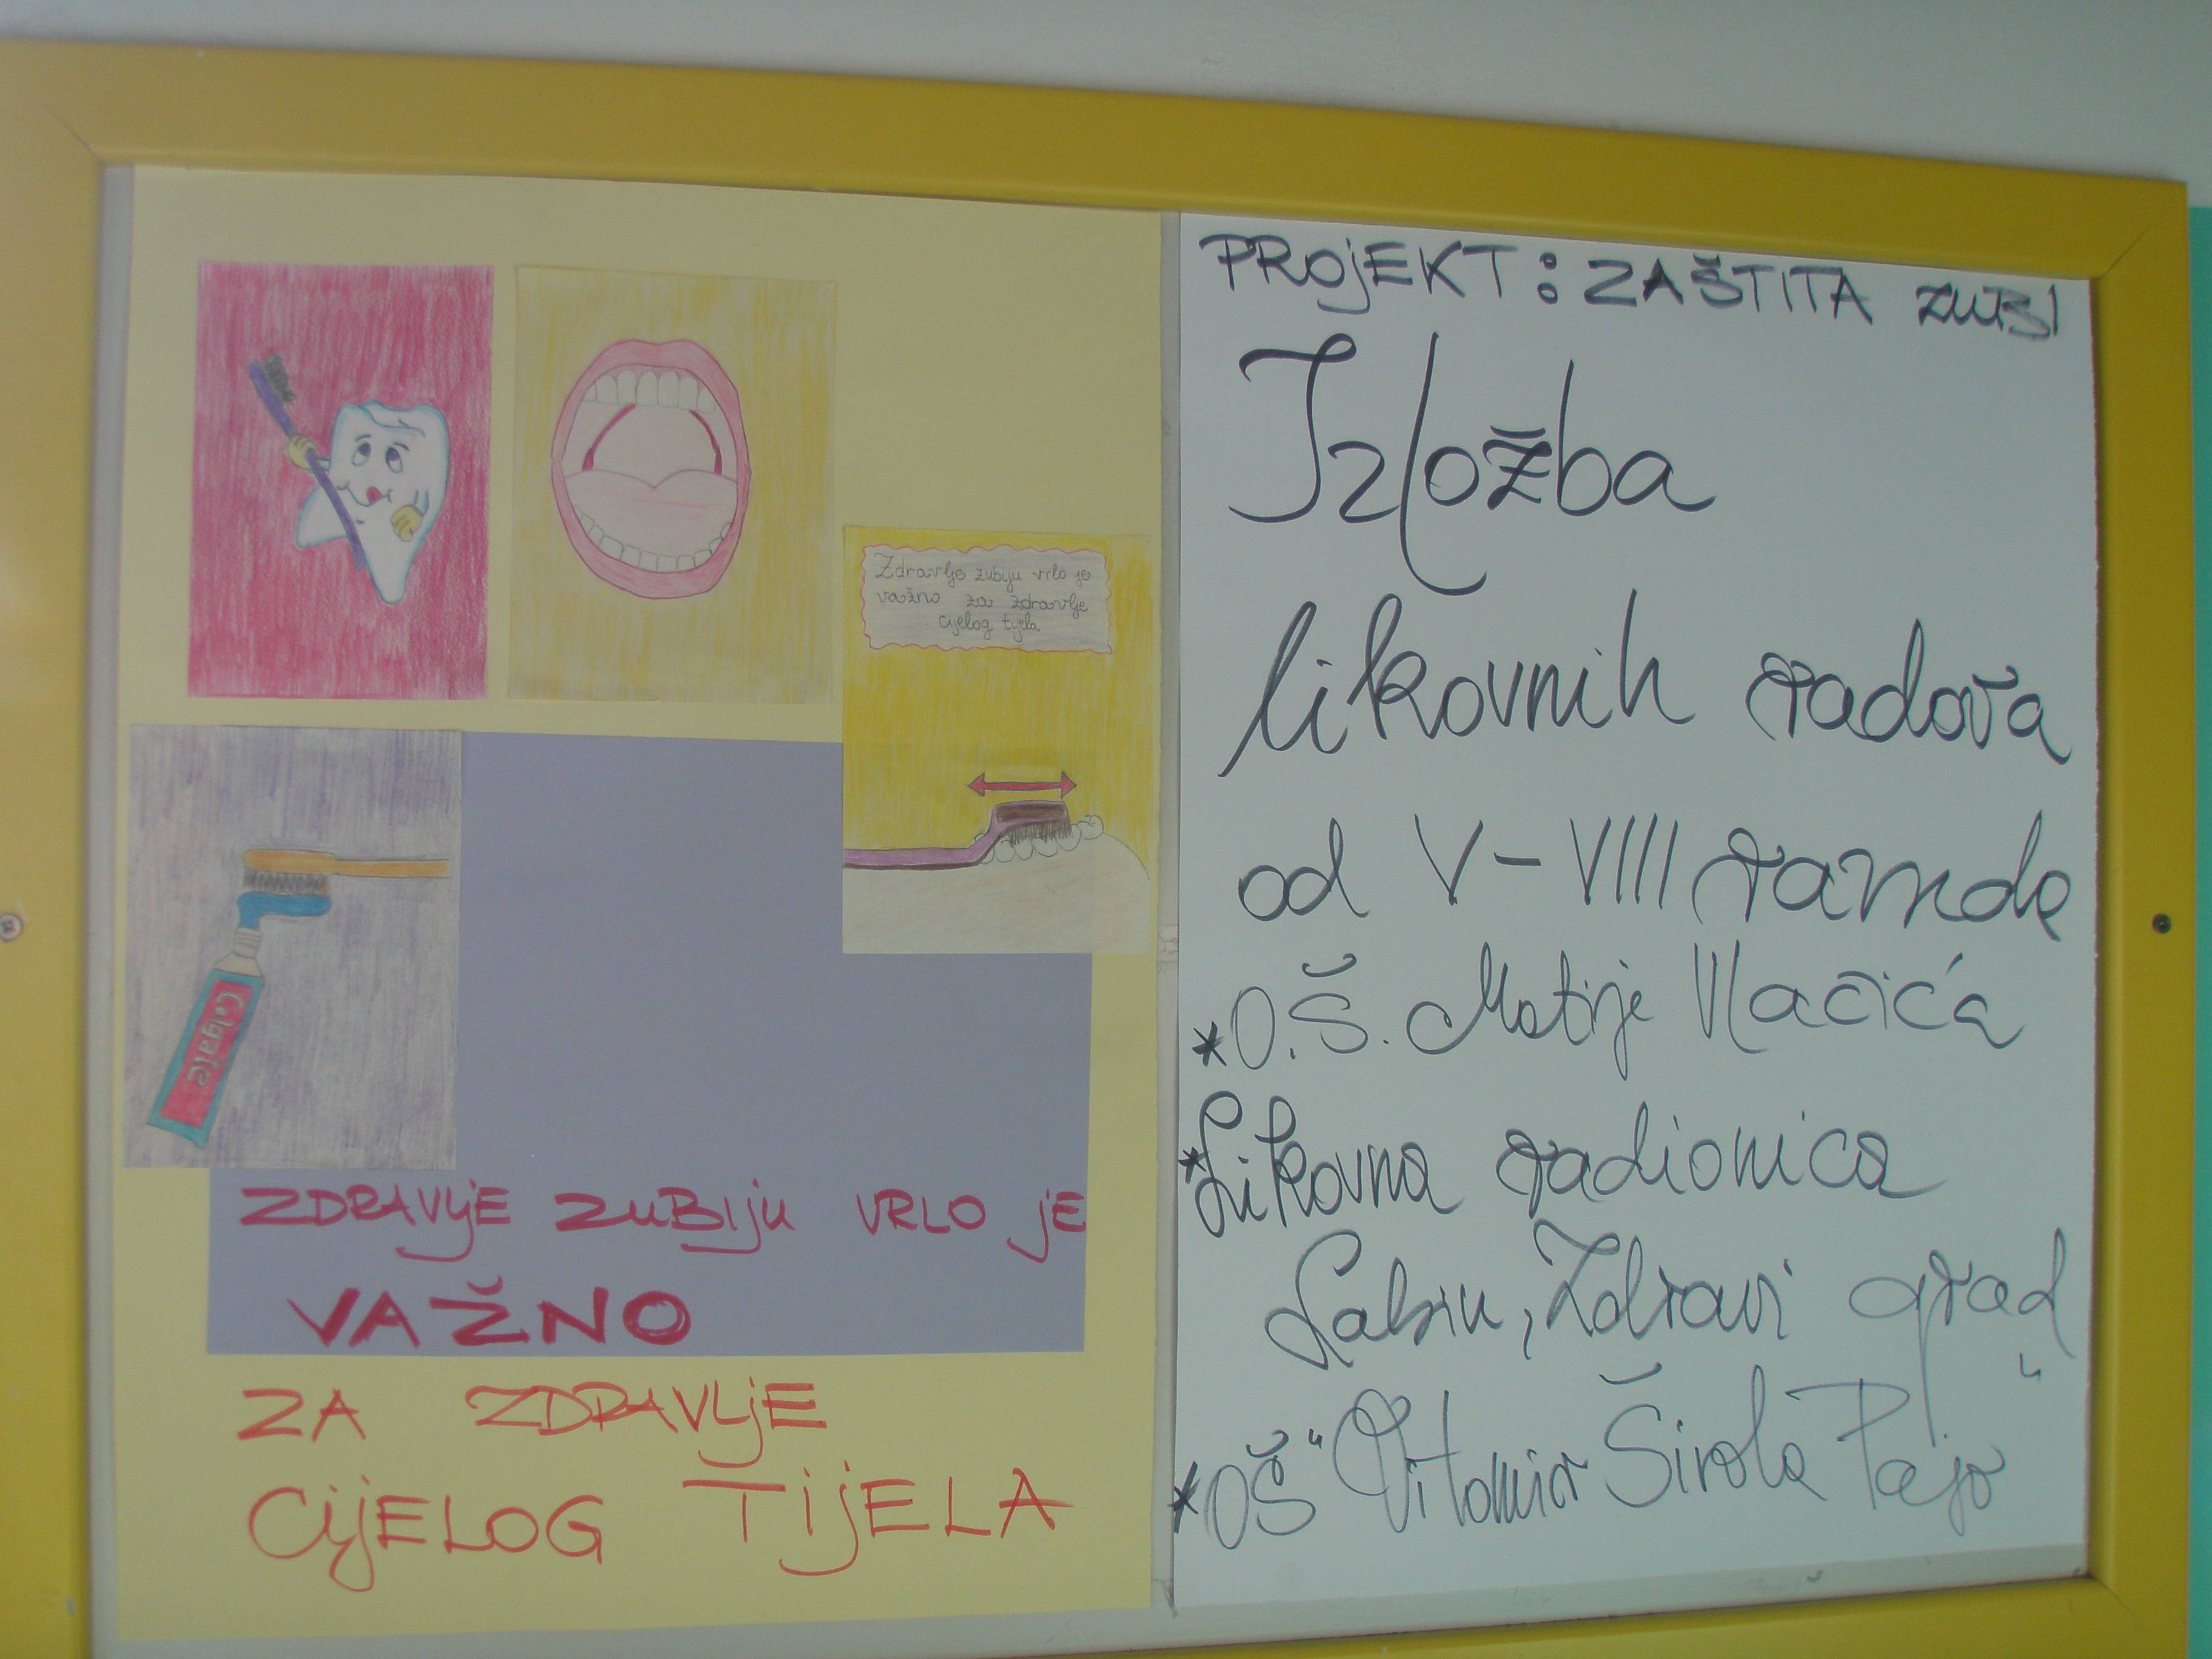 Zdravlje zubiju vrlo je
važno za zdravlje
cijelog tijela
Colgate
ZDRAVLJE ZUBIJU VRLO JE
VAŽNO
ZA ZDRAVLJE
CIJELOG TIJELA
PROJEKT: ZAŠTITA ZUBI
Izložba
likovnih radova
od V-VIII razreda
*O.Š. Matije Vlačića
*Likovna radionica
Labin, Zdravi grad
*OŠ "Vitomir Širola Pajo"